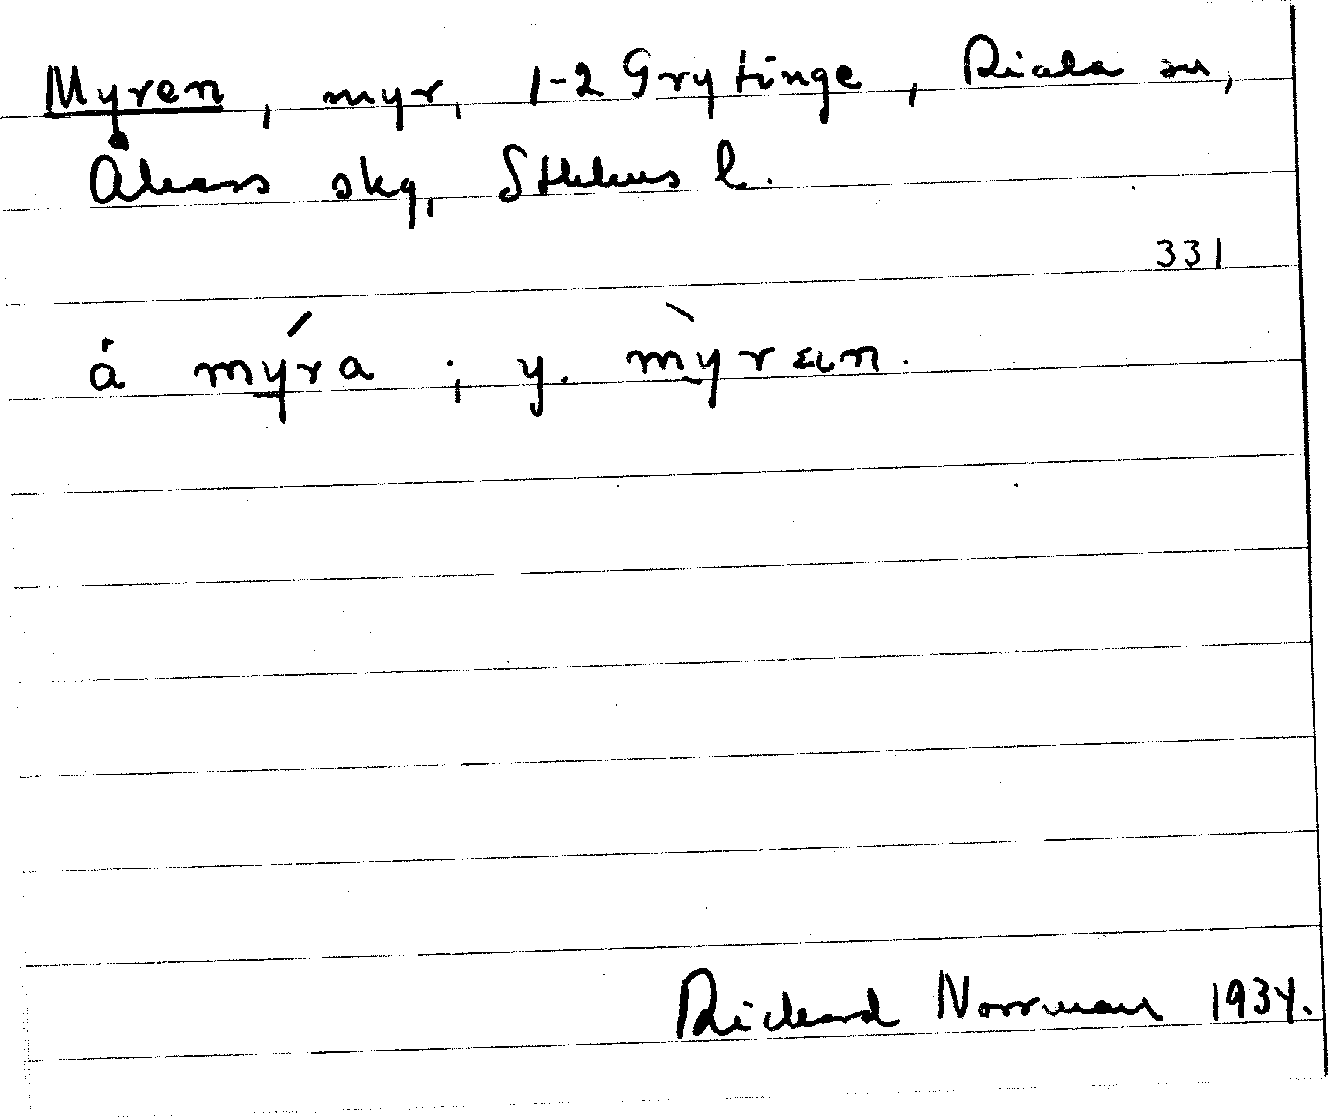 Myren, myr, 1-2 Grytinge, Riala sn,
Åkers skg, Sthlms l.
331
å mýra ; y. mỳrɛɩn.
Rickard Norrman 1934.